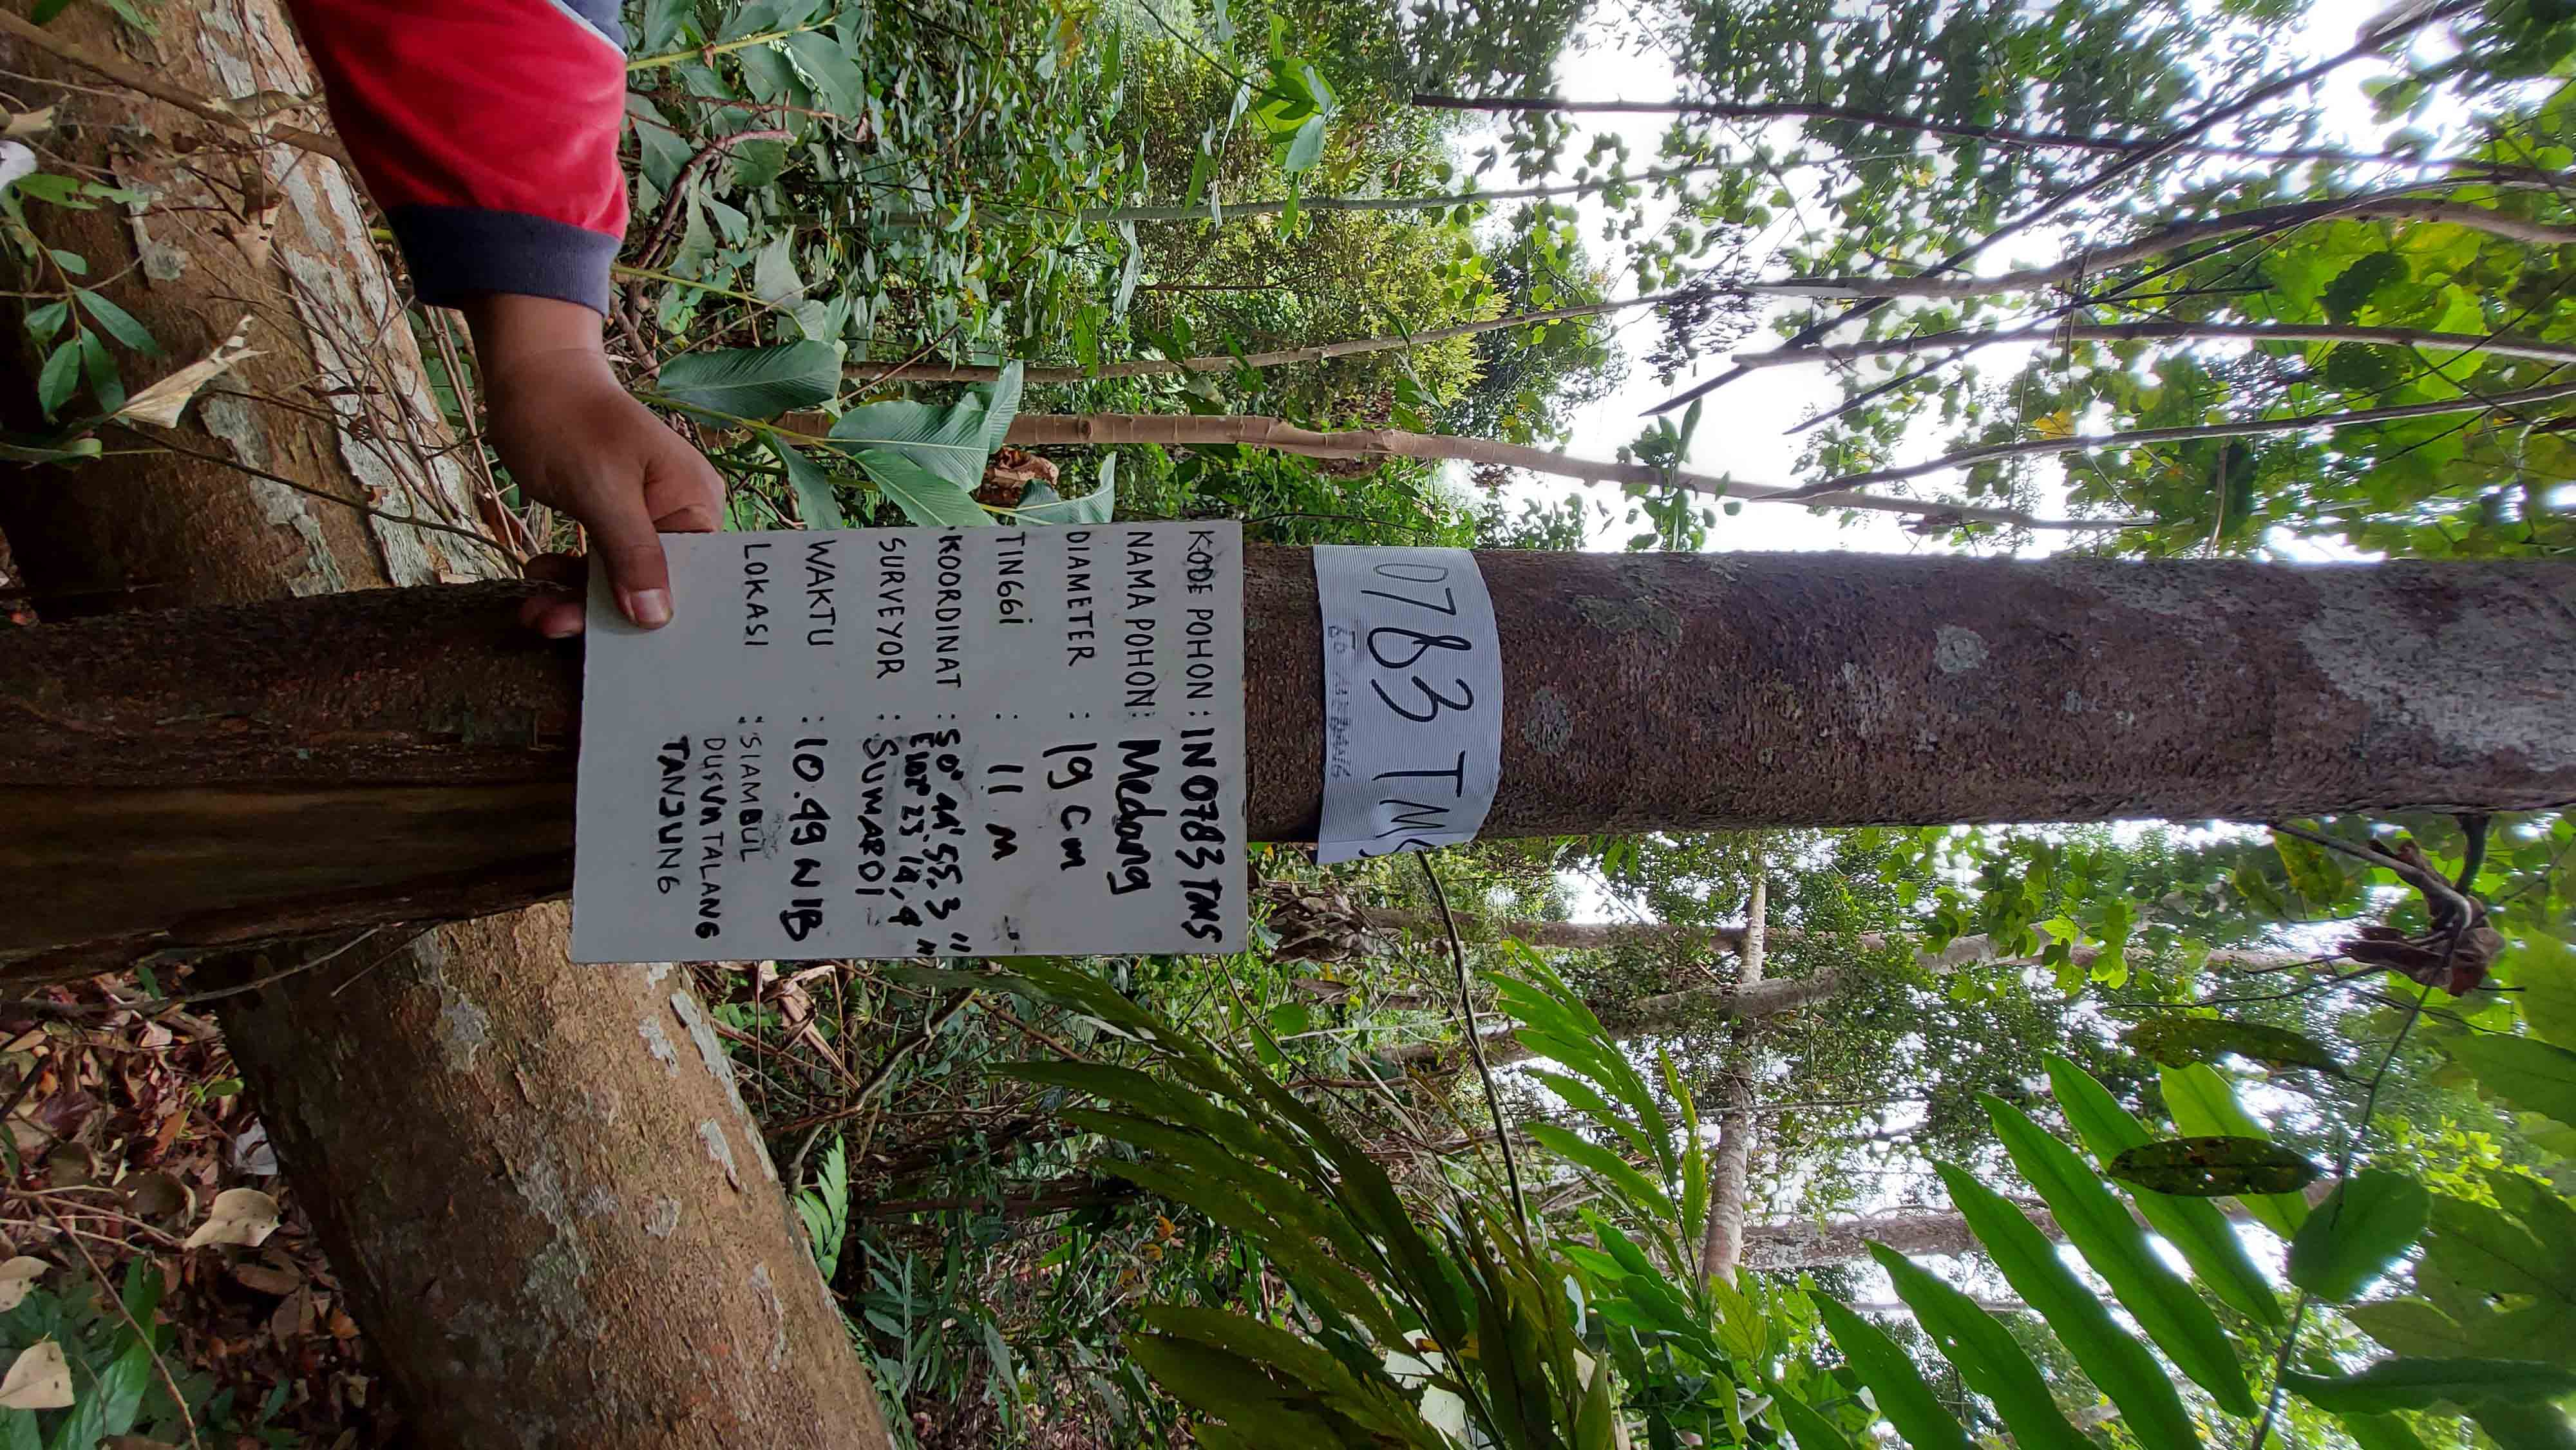 0783 TMS
MEDANG
KODE POHON : IN0783 TMS
NAMA POHON : Medang
DIAMETER : 19 cm
TINGGi : 11 M
KOORDINAT : S 0° 44' 55,3"
E 102° 23' 14,4"
SURVEYOR : SUMARDI
WAKTU : 10.49 WIB
LOKASI : SIAMBUL
DUSUN TALANG
TANJUNG